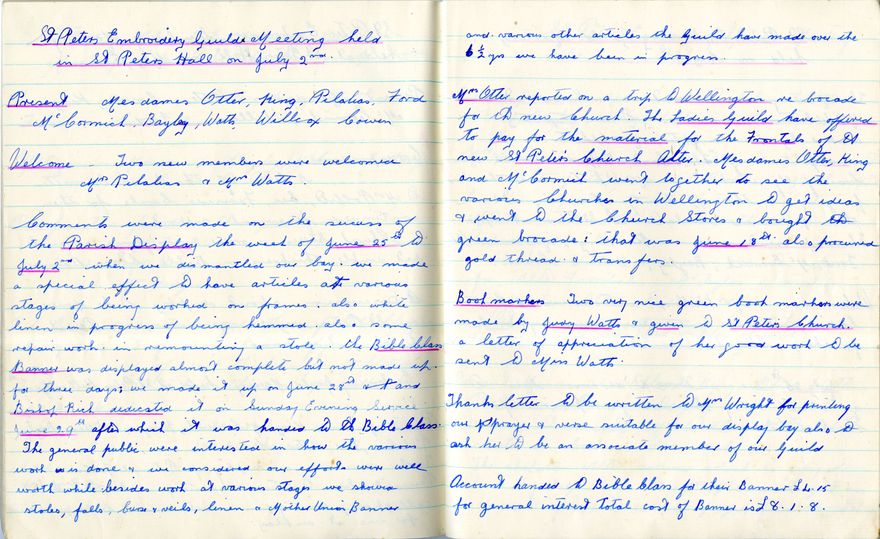 St Peters Embroidery Guild Meeting held
in St Peters Hall on July 2nd.
Present Mesdames Otter, King, Pilalias, Ford
McCormich, Bayley, Watts, Willcox Cowen
Welcome - Two new members were welcomed
Mrs Pilalias & Mrs Watts.
Comments were made on the sucess of
the Parish Display the week of June 25th to
July 2nd when we dismantled our bay. we made
a special effect to have articles at various
stages of being worked on frames. also white
linen in progress of being hemmed. also some
repair work in remounting a stole. the Bible Class
Banner was displayed almost complete but not made up.
for three days; we made it up on June 28th and
Bishop Rich dedicated it on Sunday Evening Service
June 29th after which it was handed to the Bible Class.
The general public were interested in how the various
work is done & we considered our efforts were well
worth while. besides work at various stages we showed
stoles, falls, burse & veils, linen & Mother Union Banner
and various other articles the Guild have made over the
6½ yrs we have been in progress.
Mrs Otter reported on a trip to Wellington re brocade
for the new Church. The Ladies Guild have offered
to pay for the material for the Frontals of the
new St Peters Church Alter. Mesdames Otter, King
and McCormich went together to see the
various Churches in Wellington to get ideas
& went to the Church Stores & bought the
green brocade: that was June 18th. also procured
gold thread & transfers.
Book markers Two very nice green book markers were
made by Judy Watts & given to St Peters Church.
a letter of appreciation of her good work to be
sent to Miss Watts.
Thanks letter to be written to Mrs Wright for printing
our prayer & verse suitable for our display bay also to
ask her to be an associate member of our Guild
Account handed to Bible Class for their Banner £4.15
for general interest Total cost of Banner is £8.1.8.